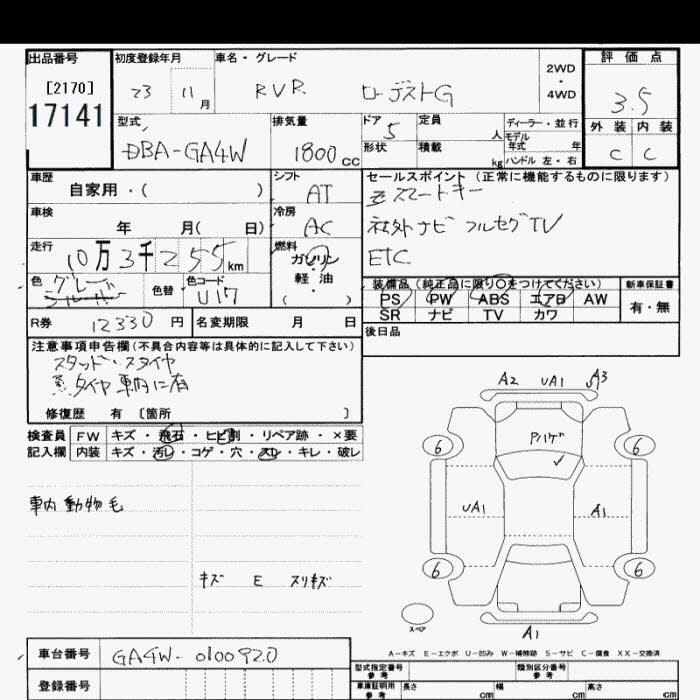 出品番号 初度登録年月 車名・グレード 評価点
[2170] 23 11月 RVR ローデストG 2WD・4WD 3.5
17141
型式 排気量 ドア 定員 ディーラー・並行 外装 内装
DBA-GA4W 1800cc 5 人 モデル年式 年 C C
形状 積載 kg ハンドル 左・右
車歴 シフト セールスポイント (正常に機能するものに限ります)
自家用・( ) AT スマートキー
車検 冷房 社外ナビ フルセグTV
年 月( 日) AC ETC
走行 燃料
10万3千255km ガソリン・軽・油 ( )
装備品(純正品に限り○をつけてください) 新車保証書
色 グレー 色替 色コード U17
PS PW ABS エアB AW 有・無
SR ナビ TV カワ
R券 12330円 名変期限 月 日 後日品
注意事項申告欄(不具合内容等は具体的に記入して下さい)
スタッドレスタイヤ
タイヤ車内に有
修復歴 有 [箇所 ]
検査員 FW キズ・飛石・ヒビ割・リペア跡・×要
記入欄 内装 キズ・汚レ・コゲ・穴・スレ・キレ・破レ
A2 UA1 A3
Pハゲ
6 6
UA1 A1
6 6
スペア
A1
車内動物毛
キズ E スリキズ
A-キズ E-エクボ U-凹み W-補修跡 S-サビ C-腐食 XX-交換済
車台番号 GA4W-0100920
型式指定番号 参考 類別区分番号 参考
登録番号 車庫証明用 参考 長さ cm 幅 cm 高さ cm